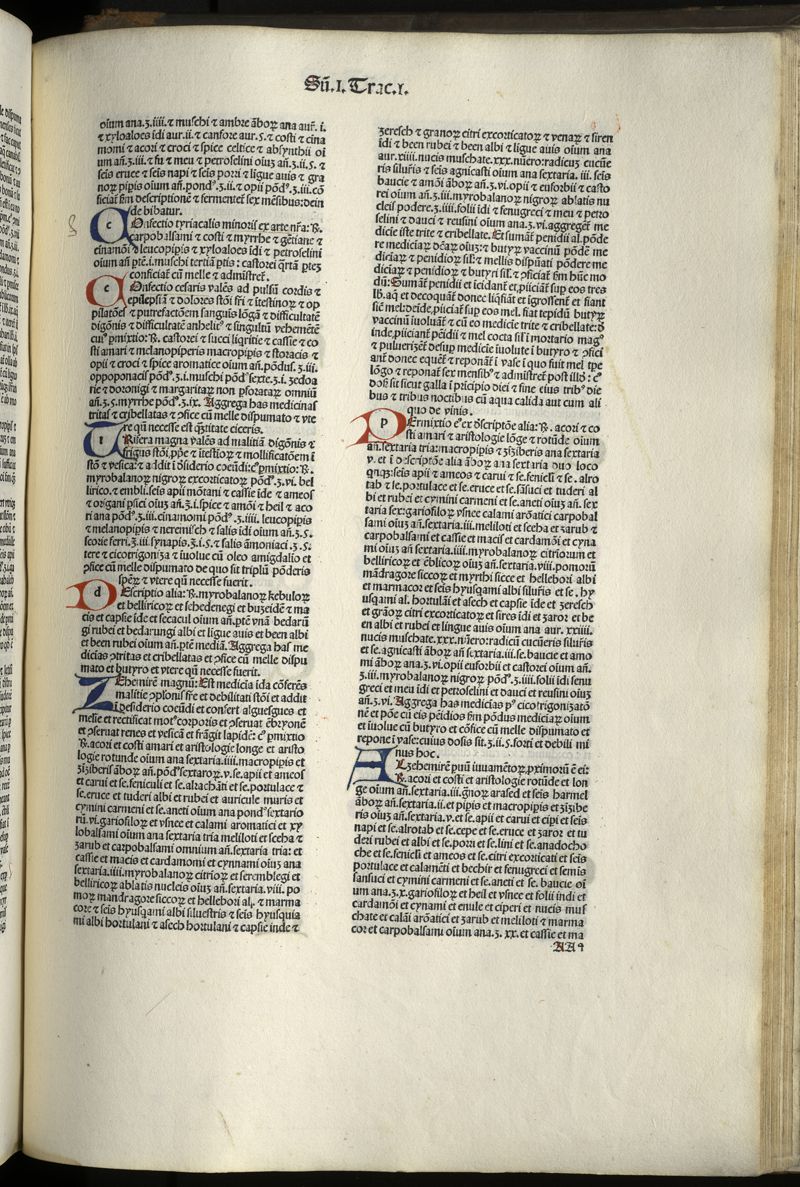 Sũ.I. Trac.I.
oĩum ana.ʒ.iiii.⁊ muschi ⁊ ambre ãboꝝ ana aur̃. i.
⁊ xyloaloes ĩdi aur.ii.⁊ canfore aur.ꝭ.⁊ costi ⁊ cina
momi ⁊ acori ⁊ croci ⁊ spice celtice ⁊ absynthii oĩ
um añ.ʒ.iii.⁊ fu ⁊ meu ⁊ petroselini oĩuʒ añ.ʒ.ii.ꝭ.⁊
seĩs eruce ⁊ seĩs napi ⁊ seĩs porri ⁊ ligue auis ⁊ gra
noꝝ pipis oĩum añ.pond᷒.ʒ.ii.⁊ opii põd᷒.ʒ.iii.cõ
ficiat̃ ẽm descriptionẽ ⁊ fermentet̃ sex mẽsibus:dein
de bibatur.
COnfectio tyriacalis minoris ex arte nr̃a: ℞.
carpobalsami ⁊ costi ⁊ myrrhe ⁊ gẽtiane ⁊
cinamõi ⁊ leucopipis ⁊ xyloaloes ĩdi ⁊ petroselini
oĩum añ ptẽ.i.muschi tertiã ptis: castorei q̃rtã pteʒ
conficiat̃ cũ melle ⁊ admĩstret̃.
COnfectio cesaris valẽs ad pulsũ cordis ⁊
epilẽpsiã ⁊ dolores stõi fri ⁊ ĩtestinoꝝ ⁊ op
pilatõeʒ ⁊ putrefactõem sanguis lõgã ⁊ difficultatẽ
digõnis ⁊ difficultatẽ anhelit᷒ ⁊ singultũ vehemẽtẽ
cui᷒ pmixtio: ℞. castorei ⁊ succi liqritie ⁊ cassie ⁊ co
sti amari ⁊ melanopiperis macropipis ⁊ storacis ⁊
opii ⁊ croci ⁊ spice aromatice oĩum añ.põdus.ʒ.iii.
oppoponacis põd᷒.ʒ.i.muschi põd᷒ sexte.ʒ.i.ʒedoa
rie ⁊ doronigi ⁊ margaritaꝝ non pforataꝝ omniũ
añ.ʒ.ꝭ.myrrhe põd᷒.ʒ.ix. Aggrega has medicinas
tritas ⁊ cribellatas ⁊ ↄfice cũ melle dispumato ⁊ vte
re qñ necesse est q̃titate ciceris.
TRifera magna valẽs ad malitiã digõnis ⁊
frigus stõi ppe ⁊ ĩtestioꝝ ⁊ mollificatõem ĩ
stõ ⁊ vesica: ⁊ addit ĩ dsiderio coeũdi: eᷓ pmixtio: ℞.
myrobalanoꝝ nigroꝝ excorticatoꝝ põd᷒.ʒ.vi. bel
lirico.⁊ embli.seĩs apii mõtani ⁊ cassie ĩde ⁊ ameos
⁊ origani psici oĩus añ.ʒ.i.spice ⁊ amõi ⁊ heil ⁊ aco
ri ana põd᷒.ʒ.iii.cinamomi põd᷒.ʒ.iiii. leucopipis
⁊ melanopipis ⁊ neremisch ⁊ salis ĩdi oĩum añ.ʒ.ꝭ.
scorie ferri.ʒ.iii.synapis.ʒ.i.ꝭ.⁊ salis ãmoniaci .ʒ.ꝭ.
tere ⁊ cicotrigoniʒa ⁊ iuolue cũ oleo amigdalio et
ↄfice cũ melle dispumato de quo sit triplũ põderis
spẽꝝ ⁊ vtere qñ necesse fuerit.
DEscriptio alia: ℞.myrobalanoꝝ kebuloꝝ
et belliricoꝝ et sehedenegi et buʒeidẽ ⁊ ma
cis et capsie ĩde et secacul oĩum añ.ptẽ vnã bedarũ
gi rubei et bedarungi albi et ligue auis et been albi
et been rubei oĩum añ.ptẽ mediã. Aggrega has me
dicias ↄtritas et cribellatas et ↄfice cũ melle dispu
mato et butyro et vtere qñ necesse fuerit.
ZEhemirẽ magnũ: Est medicia ĩda cõferẽs
malitie ↄplonis frẽ et debilitati stõi et addit
ĩ desiderio coeũdi et confert algũesgues et
melle et rectificat mot᷒ corporis et ↄseruat ẽbryonẽ
et ↄseruat renes et vesicã et frãgit lapidẽ: eᷓ pmixtio
℞.acori et costi amari et aristologie longe et aristo
logie rotunde oĩum ana sextaria.iiii.macropipis et
ʒiʒiberis ãboꝝ añ.põd᷒.sextaroꝝ.v.se.apii et amcos
et carui et se.feniculi et se.altachãti et se.portulace ⁊
se.eruce et tuderi albi et rubei et auricule muris et
cymini carmeni et se.aneti oĩum ana pond᷒ sextario
rũ.vi.gariofiloꝝ et vsnee et calami aromatici et xy
lobalsami oĩum ana sextaria tria meliloti et secha ⁊
ʒarub et carpobalsami omnium añ.sextaria tria: et
cassie et macis et cardamomi et cynnami oĩuʒ ana
sextaria.iiii.myrobalanoꝝ citrioꝝ et seremblegi et
belliricoꝝ ablatis nucleis oĩuʒ añ.sextaria.viii. po
moꝝ mandragore siccoꝝ et hellebori al. ⁊ marma
core ⁊ seĩs hyusqami albi siluestris ⁊ seĩs hyusquia
mi albi hortulani ⁊ asech hortulani ⁊ capsie inde ⁊
ʒeresch ⁊ granoꝝ citri excorticatoꝝ ⁊ venaꝝ ⁊ siren
ĩdi ⁊ been rubei ⁊ been albi ⁊ ligue auis oĩum ana
aur.xiiii.nucis muschate.xxx.nũero:radicuʒ cucũe
ris silur̃is ⁊ seĩs agnicasti oĩum ana sextaria. iii. seĩs
baucie ⁊ amõi ãboꝝ añ.ʒ.vi.opii ⁊ euforbii ⁊ casto
rei oĩum añ.ʒ.iii.myrobalanoꝝ nigroꝝ ablatis nu
cleis podere.ʒ.iiii.folii ĩdi ⁊ fenugreci ⁊ meu ⁊ petro
selini ⁊ dauci ⁊ reusini oĩum ana.ʒ.vi.aggreget̃ me
dicie iste trite ⁊ cribellate. Et sumãt̃ penidii al.põde
re mediciaꝝ dẽaꝝ oĩuʒ: ⁊ butyꝝ vaccinũ põdẽ me
diciaꝝ ⁊ penidioꝝ sil: ⁊ mellis dispũati põdere me
diciaꝝ ⁊ penidioꝝ ⁊ butyri sil. ⁊ ↄficiat̃ ẽm hũc mo
dũ: Sumãt̃ penidii et ĩcidant̃ et piiciãt̃ sup eos tres
lb.aq̃ et decoquãt̃ donec liq̃fiãt et igrossent̃ et fiant
sic mel:deĩde.piiciat̃ sup eos mel. fiat tepidũ butyꝝ
vaccinũ iuoluãt̃ ⁊ cũ eo medicie trite ⁊ cribellate:d̃
inde,piiciant̃ pẽidii ⁊ mel cocta sil ĩ mortario mag᷒
⁊ pulueriʒet̃ desup medicie iuolute ĩ butyro ⁊ ↄfici
ant̃ donec equẽt̃ ⁊ reponãt̃ ĩ vase ĩ quo fuit mel tpe
lõgo ⁊ reponãt̃ sex mensib᷒ ⁊ admĩstret̃ post illd̃ : eᷓ
dosi sit sicut galla ĩ prĩcipio diei ⁊ fine eius trib᷒ die
bus ⁊ tribus noctibus cũ aqua calida aut cum ali
quo de vinis.
PErmixtio eᷓ ex dscriptõe alia: ℞. acori ⁊ co
sti amari ⁊ aristologie lõge ⁊ rotũde oĩum
añ.sextaria tria:macropipis ⁊ ʒiʒiberis ana sextaria
v. et ĩ dscriptõe alia ãboꝝ ana sextaria duo loco
qnqʒ:seĩs apii ⁊ ameos ⁊ carui ⁊ se.feniẽli ⁊ se . alro
tab ⁊ le.portulace et se.eruce et se.sãsuci et tuderi al
bi et rubei et cymini carmeni et se.aneti oĩuʒ añ. sex
taria sex:gariofiloꝝ ⁊ vsnee calami arõatici carpobal
sami oĩuʒ añ.sextaria.iii.meliloti et secha et ʒarub ⁊
carpobalsami et cassie et macis et cardamõi et cyna
mi oĩuʒ añ sextaria.iiii.myrobalanoꝝ citriorum et
belliricoꝝ et ẽblicoꝝ oĩuʒ añ.sextaria.viii.pomorũ
mãdragore siccoꝝ et myrthi sicce et hellebori albi
et marmacoꝝ et seĩs hyusqami albi silur̃is et se. hy
usqami al. hortulãi et asech et capsie ĩde et ʒeresch
et grãoꝝ citri excorticatoꝝ et sires ĩdi et ʒaroꝝ et be
en albi et rubei et lingue auis oĩum ana aur. xxiiii.
nucis muschate.xxx.nũero:radicũ cucũeris silur̃is
et se.agnicasti ãboꝝ añ sextaria.iii.se.baucie et amo
mi ãboꝝ ana.ʒ.vi.opii euforbii et castorei oĩum añ.
ʒ.iii.myrobalanoꝝ nigroꝝ põd᷒ .ʒ.iiii.folii ĩdi fenu
greci et meu ĩdi et petroselini et dauci et reusini oĩuʒ
añ.ʒ.vi. Aggrega has medicinas p᷒ cicotrigoniʒatõ
nẽ et põe cũ eis pẽidios ẽm põdus mediciaꝝ oĩum
et ĩuolue cũ butyro et cõfice cũ melle dispumato et
repone ĩ vase:cuius dosis sit.ʒ.ii.ꝭ.forti et debili mi
nus hoc.
ALʒehemirẽ puũ iuuamẽtoꝝ,pximorũ ẽ ei:
℞.acori et costi et aristologie rotũde et lon
ge oĩum añ.sextaria.iii.gñoꝝ arased et seĩs harmel
ãboꝝ añ.sextaria.ii.et pipis et macropipis et ʒiʒibe
ris oĩuʒ añ.sextaria.v.et se.apii et carui et cipi et seĩs
napi et se.alrotab et se.cepe et se.eruce et ʒaroꝝ et tu
deri rubei et albi et se.porri et se.lini et se.anadocho
che et se.feniẽli et ameos et se.citri excorticati et seĩs
portulace et calamẽti et bechir et fenugreci et semis
sansuci et cymini carmeni et se.aneti et se. baucie oĩ
um ana.ʒ.x.gariofiloꝝ et heil et vsnee et folii indi et
cardamõi et cynami et enule et ciperi et nucis mus
chate et calãi arõatici et ʒarub et meliloti ⁊ marma
cor et carpobalsami oĩum ana.ʒ. xx.et cassie et ma
AA 4